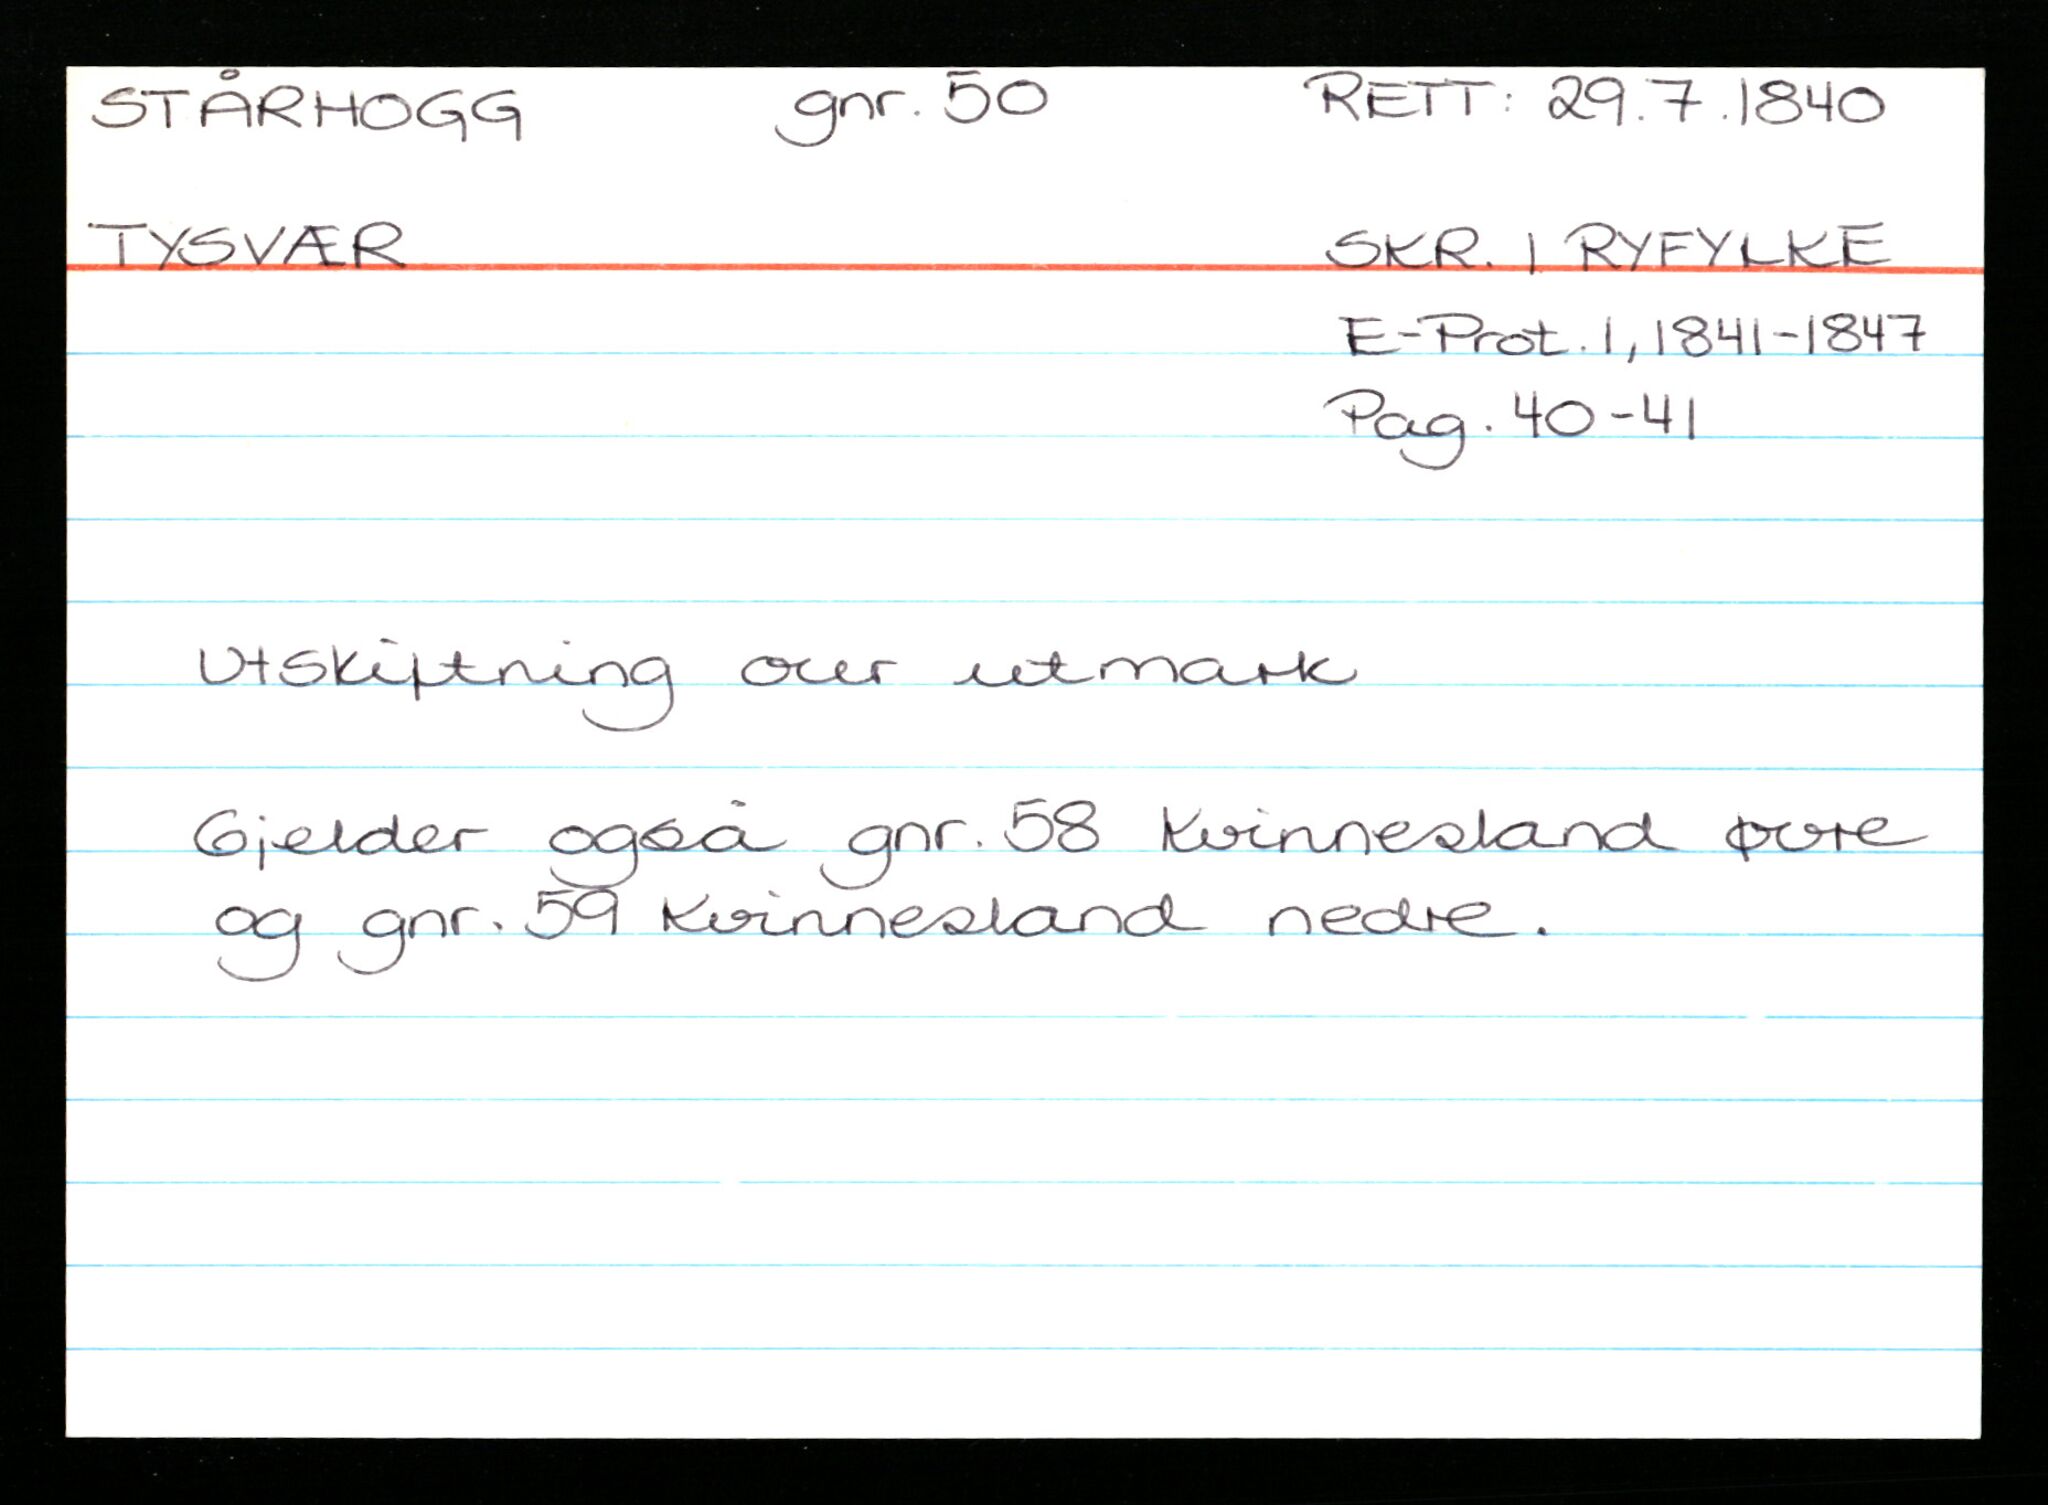 STÅRHOGG gnr. 50 RETT: 29.7.1840
TYSVÆR SKR. I RYFYLKE
E-Prot. 1, 1841-1847
Pag. 40-41
Utskiftning over utmark
Gjelder også gnr. 58 Kvinnesland øvre
og gnr. 59 Kvinnesland nedre.